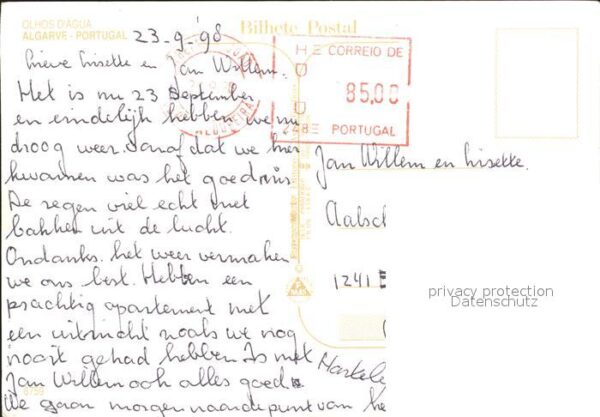 OLHOS D'AGUA
ALGARVE - PORTUGAL
Bilhete Postal
23-9-'98
CORREIO DE
85,00
PORTUGAL
lieve Lisette en Jan Willem.
Het is nu 23 September
en eindelijk hebben we nu
droog weer. vanaf dat we hier
kwamen was het goed mis
De regen viel echt met
bakken uit de lucht.
Ondanks het weer vermaken
we ons best. Hebben een
prachtig apartement met
een uitzicht zoals we nog
nooit gehad hebben Is met
Jan Willem ook alles goed
We gaan morgen naar de punt van he
Jan Willem en Lisette.
Aalsc
1241
privacy protection
Datenschutz